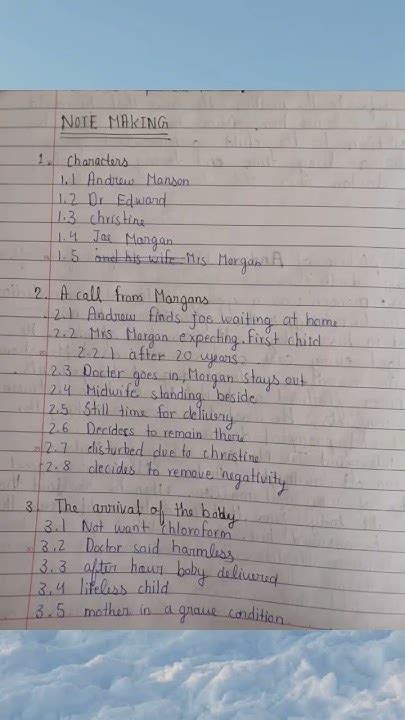 NOTE MAKING
1. Characters
1.1 Andrew Manson
1.2 Dr Edward
1.3 christine
1.4 Joe Morgan
1.5 and his wife Mrs Morgan A
2. A call from Morgans
2.1 Andrew finds joe waiting at home
2.2 Mrs Morgan expecting first child
2.2.1 after 20 years
2.3 Docter goes in, Morgan stays out
2.4 Midwife standing beside
2.5 Still time for delivery
2.6 Decides to remain there
2.7 disturbed due to christine
2.8 decides to remove negativity
3. The arrival of the baby
3.1 Not want chloroform
3.2 Doctor said harmless
3.3 after hour baby delivered
3.4 lifeless child
3.5 mother in a grave condition